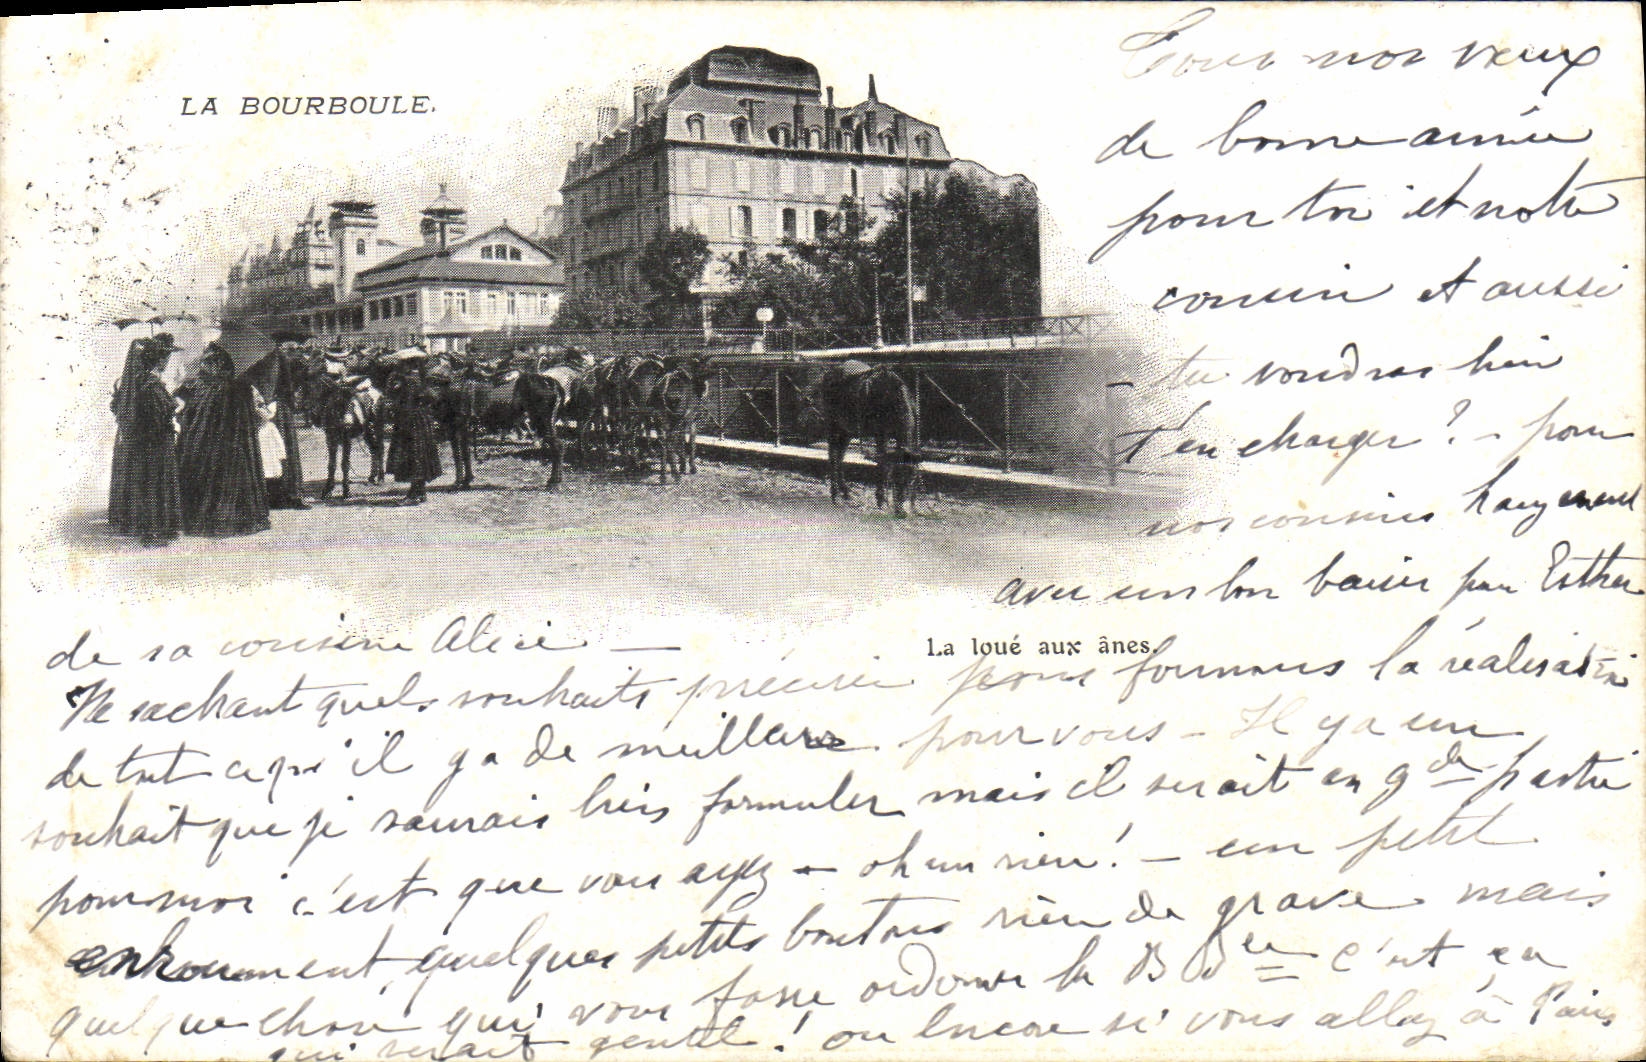 LA BOURBOULE.
Tous nos vœux
de bonne année
pour toi et notre
cousin et aussi
tu voudras bien
t'en charger ? - pour
nos cousins
avec un bon baiser pour Esther
de sa cousine Alice —
La loué aux ânes.
Ne sachant quels souhaits préciser formons la réalisation
de tout ce qu'il y a de meilleur pour vous - Il y a un
souhait que je saurais bien formuler mais il serait en gde partie
pour moi c'est que vous ayez - oh un rien ! - un petit
enrouement, quelques petits boutons rien de grave mais
quelque chose qui vous fasse ordonner la B Ble c'est ça
qui serait gentil ! ou encore si vous alliez à Paris